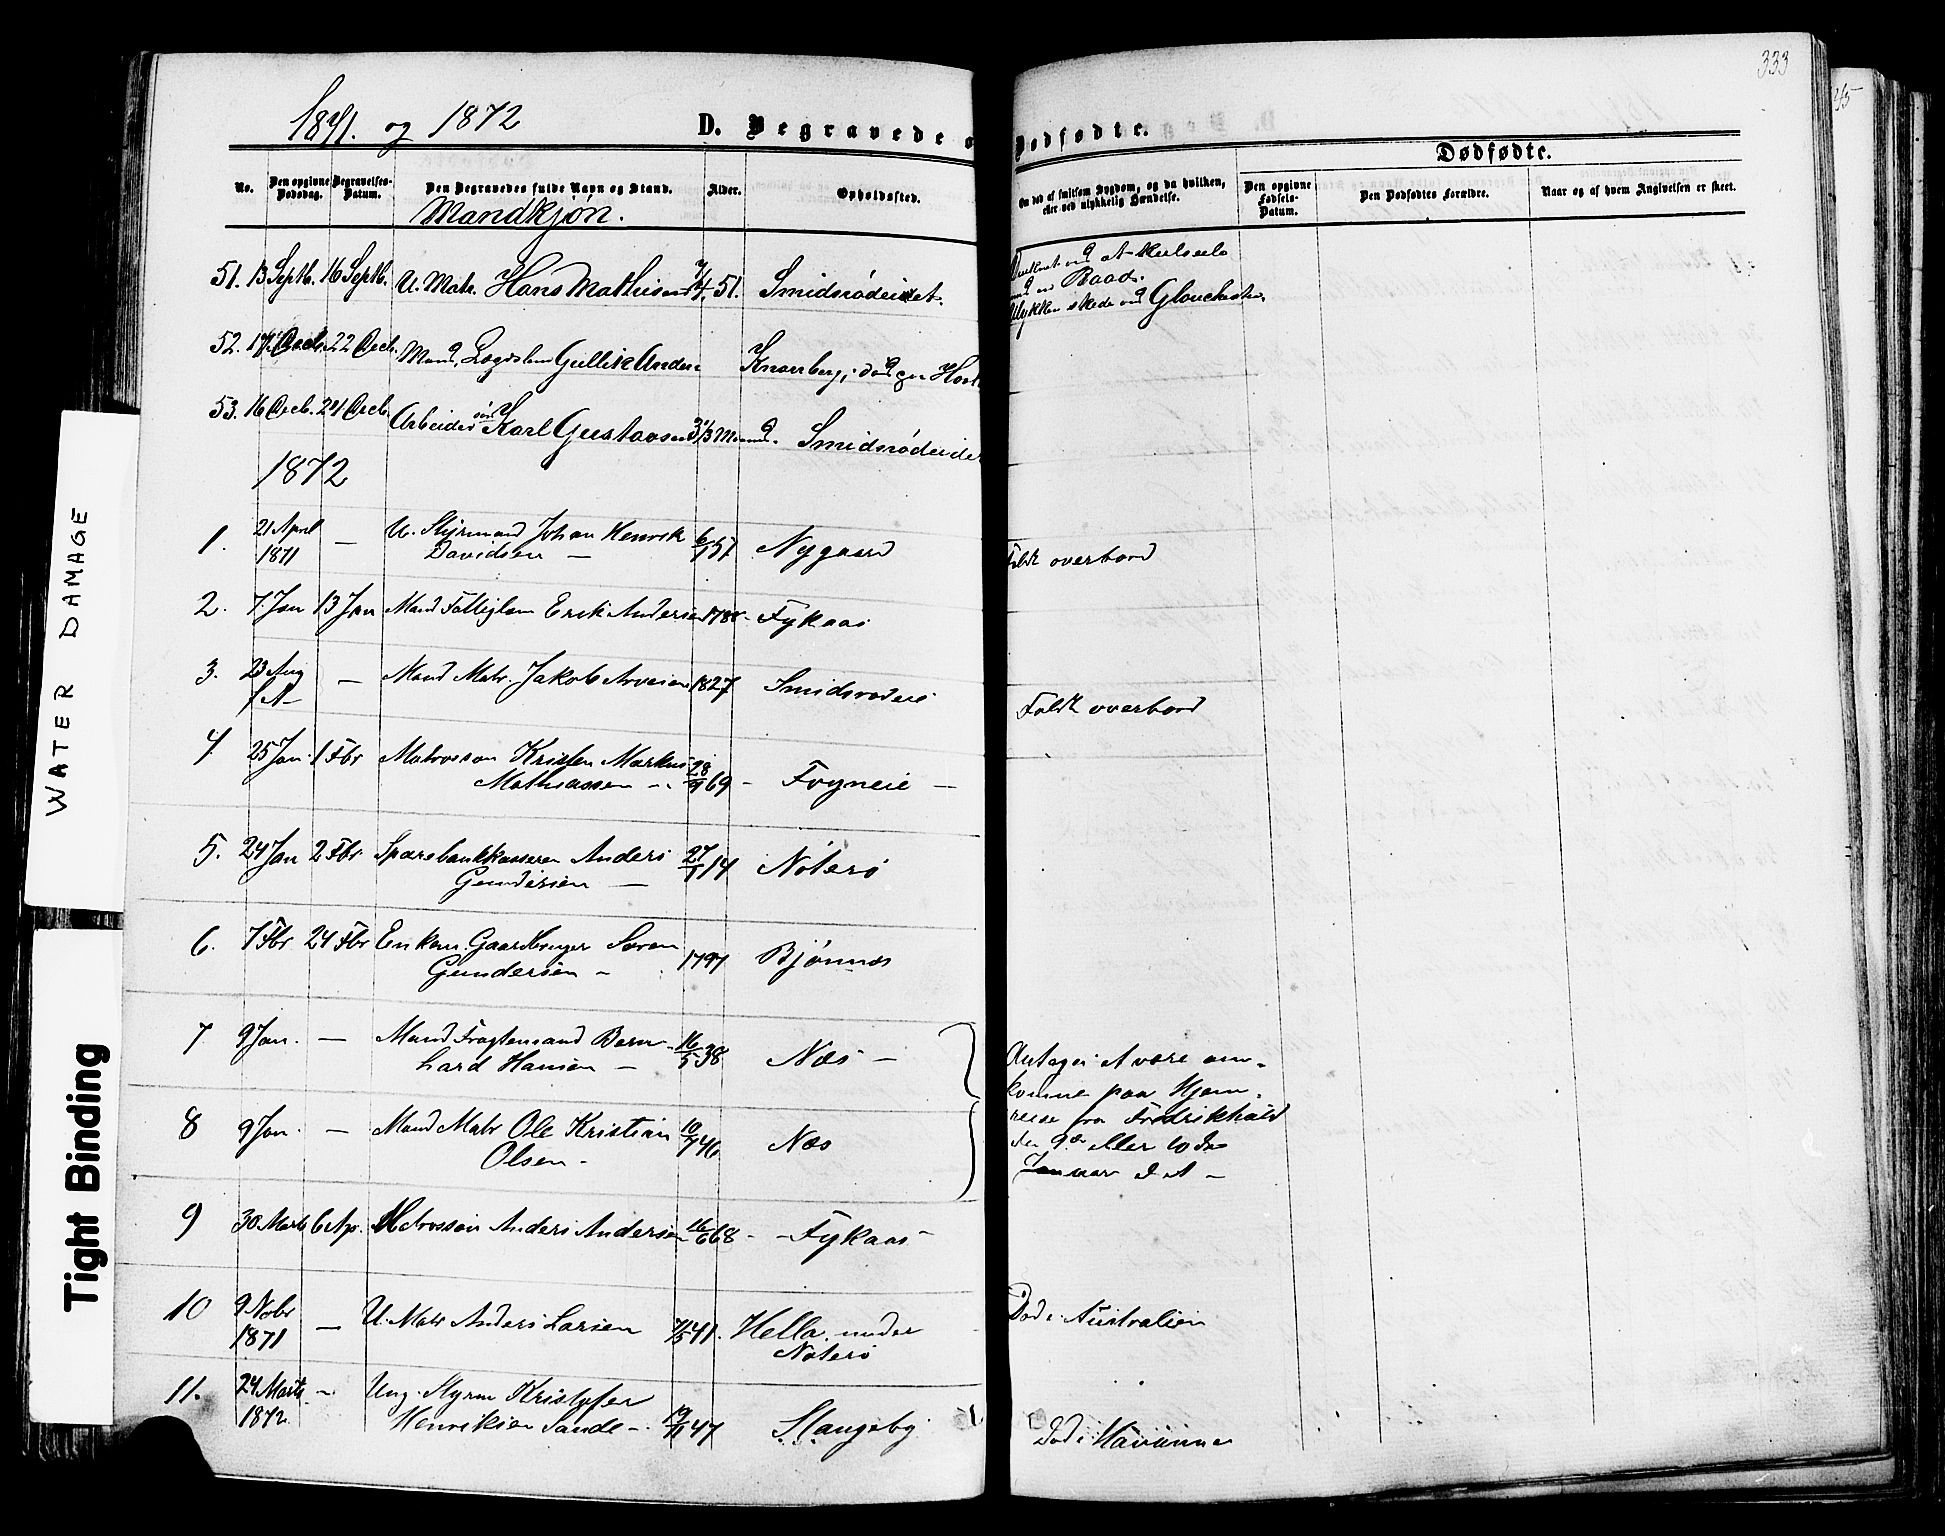 333
1871. og 1872
D. Begravede o
Dødfødte.
Dødfødte.
No.
Den opgivne Dødsdag.
Begravelses-Datum.
Den Begravedes fulde Navn og Stand.
Alder.
Opholdssted.
Om død af smitsom Sygdom, og da hvilken,
eller ved ulykkelig Hændelse.
Den opgivne Fødsels-Datum.
Den Dødfødtes Forældre.
Naar og af hvem Angivelsen er skeet.
Mandkjøn.
51. 13 Septb. 16 Septb. U. Matr. Hans Mathisen 7/4 51. Smidsrødeidet.
Druknet ved
Baad.
skede ved Glouchester
52. 17 Decb. 22 Decb. Mand, Logslem Gullik Anders Knarrberg, død
53. 16 Decb. 24 Decb. Arbeider søn Karl Gustavsen 3 1/3 Maaned. Smidsrødeide
1872
1. 21 April 1871 — U. Styrmand Johan Henrik
Davidsen — 6/1 57 Nygaard
Faldt overbord
2. 7. Jan 13 Jan Mand Fattiglem Erik Andersen 1788 - Fykaas
3. 23 Aug f A — Mand Matr. Jakob Arvesen 1827 Smidsrødeie
Faldt overbord
4 25 Jan. 1 Fbr Matrosson Kristen Markus
Mathiassen — 28/9 69 - Fogneie —
5. 24 Jan 2 Fbr Sparebankkasseren Anders
Gundersen — 27/1 14 Nøterø
6. 7 Fbr 24 Fbr Enkem. Gaardbruger Søren
Gundersen — 1797 Bjønnes
7 9 Jan. — Mand Fragtemand Bern-
hard Hansen — 16/5 38 Næs —
Antages at være om-
komne paa Hjem-
reise fra Fredrikhald
den 9de eller 10de
Januar d A —
8 9 Jan. — Mand Matr Ole Kristian
Olsen - 10/7 46 Næs
9 30 Marts 6 Ap. Matrossøn Anders Andersen 16/6 68 - — Fykaas —
10 9 Novbr 1871 — U. Matr Anders Larsen 7/5 41. Hella under
Nøterø
Død i Australien
11. 24 Marts 1872. — Ung. Styrm Kristofer
Henriksen Sande — 19/11 47 Stangeby
Død i Havanna
WATER DAMAGE
Tight Binding